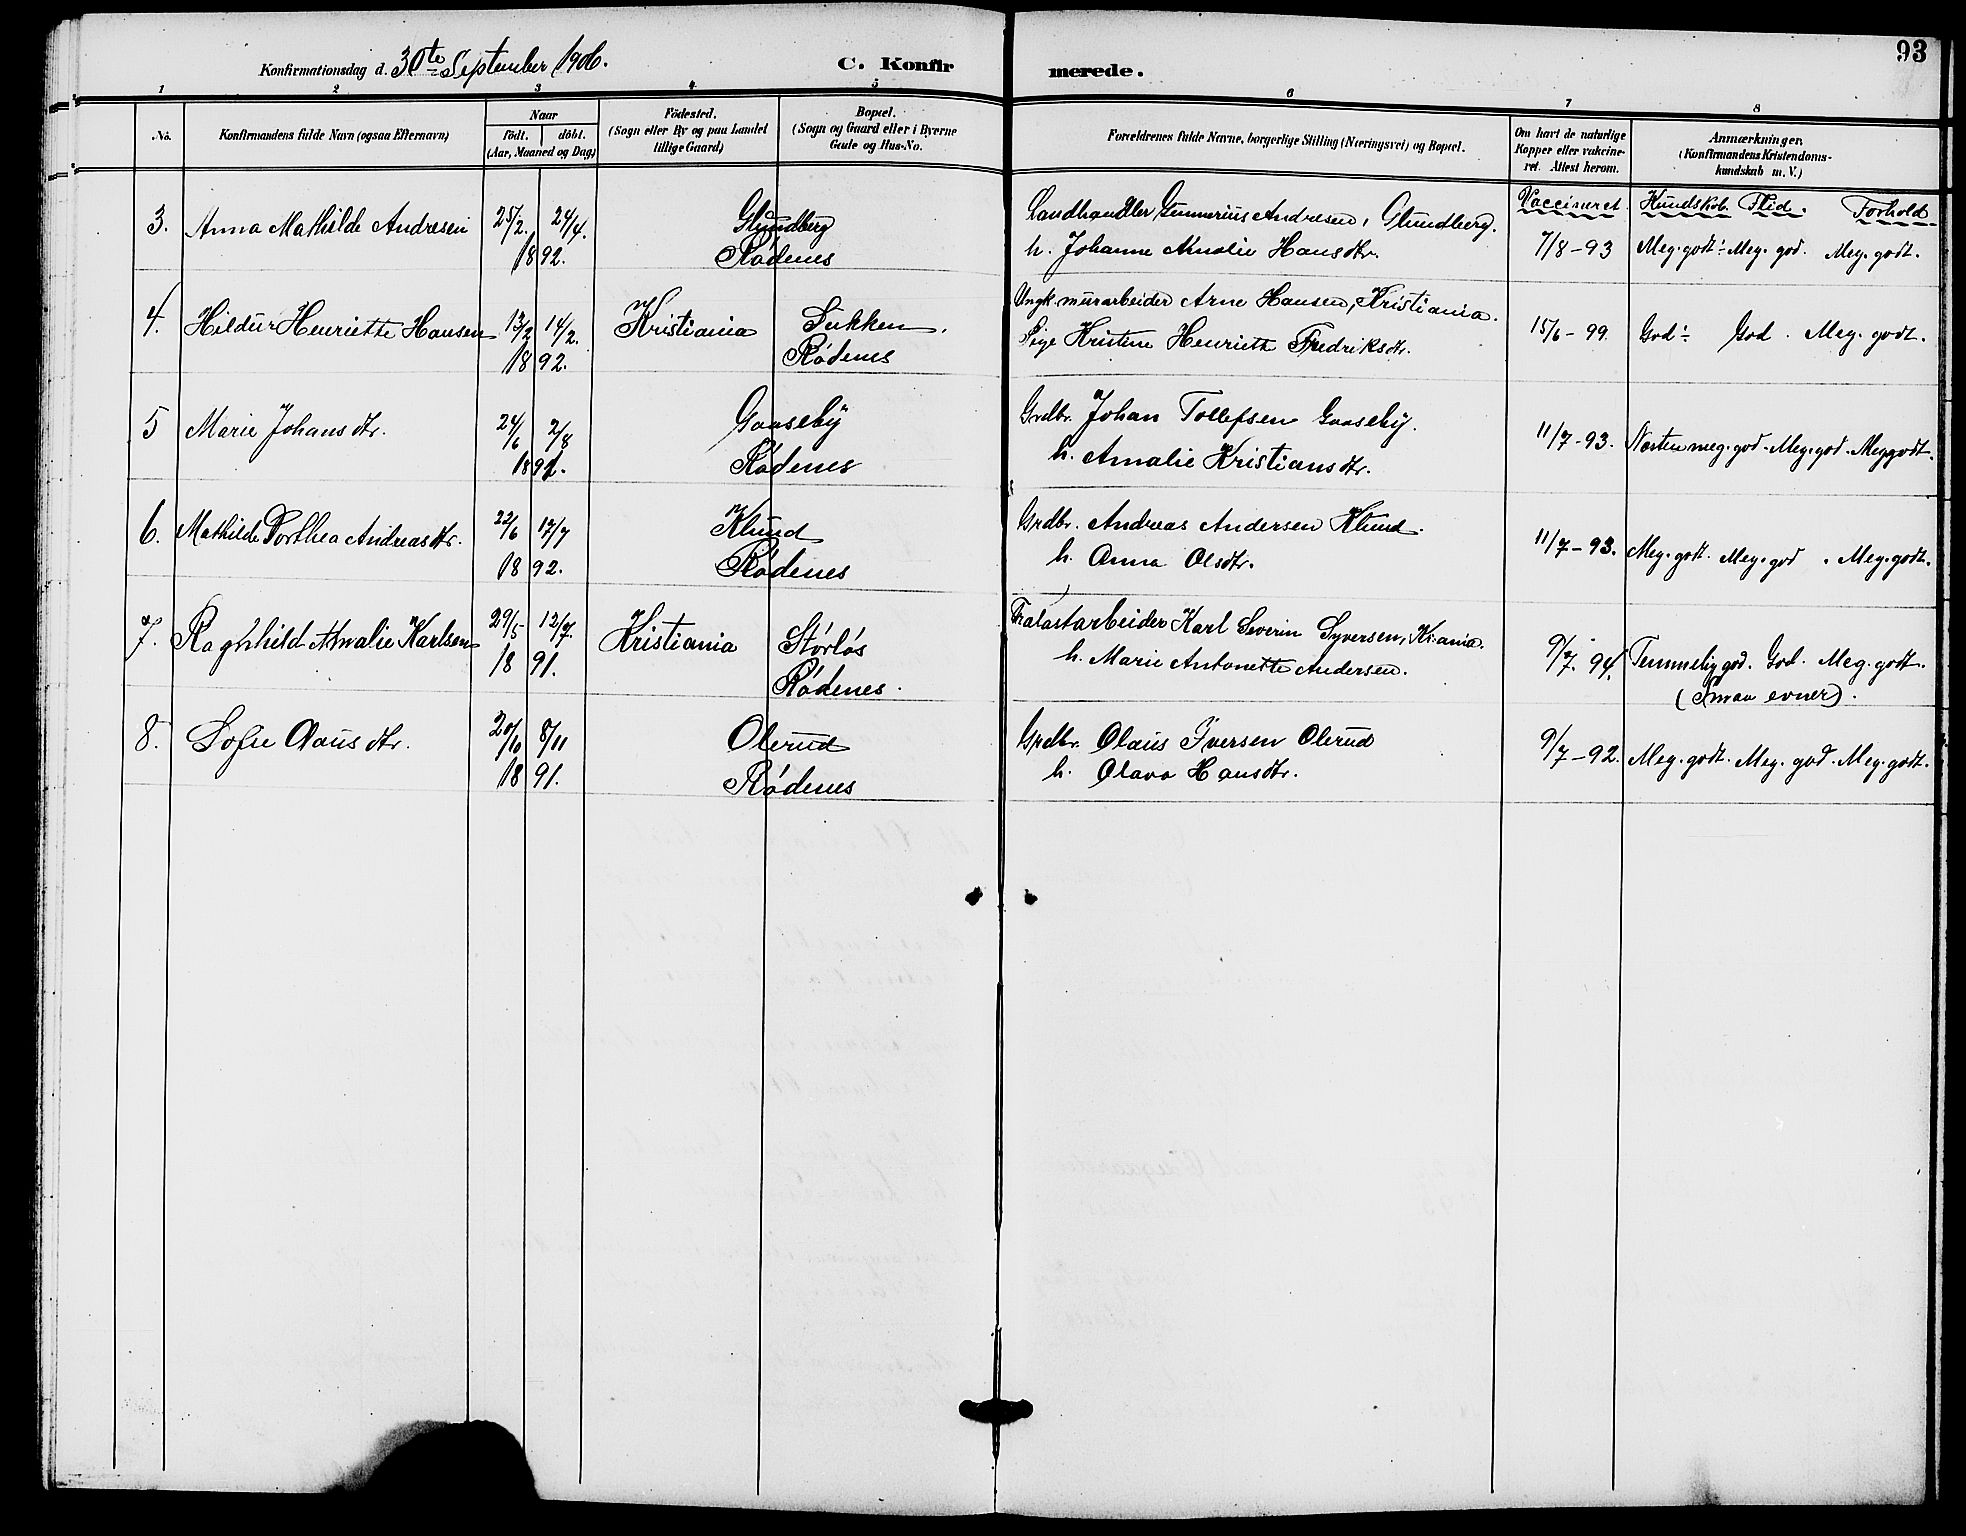 93
Konfirmationsdag d. 30te September 1906. C. Konfirmerede.
1 2 3 4 5 6 7 8
No. Konfirmandens fulde Navn (ogsaa Efternavn) Naar födt. döbt. (Aar, Maaned og Dag) Födested. (Sogn eller By og paa Landet tillige Gaard) Bopæl. (Sogn og Gaard eller i Byerne Gade og Hus-No. Forældrenes fulde Navne, borgerlige Stilling (Næringsvei) og Bopæl. Om havt de naturlige Kopper eller vakcineret. Attest herom. Anmærkninger. (Konfirmandens Kristendomskundskab m. V.)
Vaccineret Kundskab. Flid. Forhold
3. Anna Mathilde Andresen 25/2. 24/4. Glundberg Landhandler Gunnerius Andresen, Glundberg.
1892. Rødenes h. Johanne Amalie Hansdtr. 7/8-93 Meg. godt ÷ Meg. god. Meg. godt.
4. Hildur Henriette Hansen 13/2 14/2. Kristiania Sukken. Ungk. murarbeider Arne Hansen, Kristiania.
1892. Rødenes Pige Kristine Henriette Fredriksdtr. 15/6-99. God ÷ God. Meg. godt.
5 Marie Johansdtr. 24/6 2/8 Gaaseby Grdbr. Johan Tollefsen Gaaseby.
1891. Rødenes h. Amalie Kristiansdtr. 11/7-93. Næsten meg. god. Meg. god. Meg godt.
6. Mathilde Dorthea Andreasdtr. 22/6 17/7 Klund Grdbr. Andreas Andersen Klund.
1892. Rødenes h. Anna Olsdtr. 11/7-93. Meg. godt. Meg. god. Meg. godt.
7. Raghhild Amalie Karlsen 29/5 12/7. Kristiania Størløs Fralastarbeider Karl Severin Syversen, Kr.ania.
1891. Rødenes. h. Marie Antonette Andersen. 9/7. 94. Temmelig god. God. Meg. godt.
(Smaa evner).
8. Sofie Olausdtr. 20/10 8/11 Olerud Grdbr. Olaus Iversen Olerud
1891. Rødenes h. Olava Hansdtr. 9/7-92. Meg. godt. Meg. god. Meg. godt.